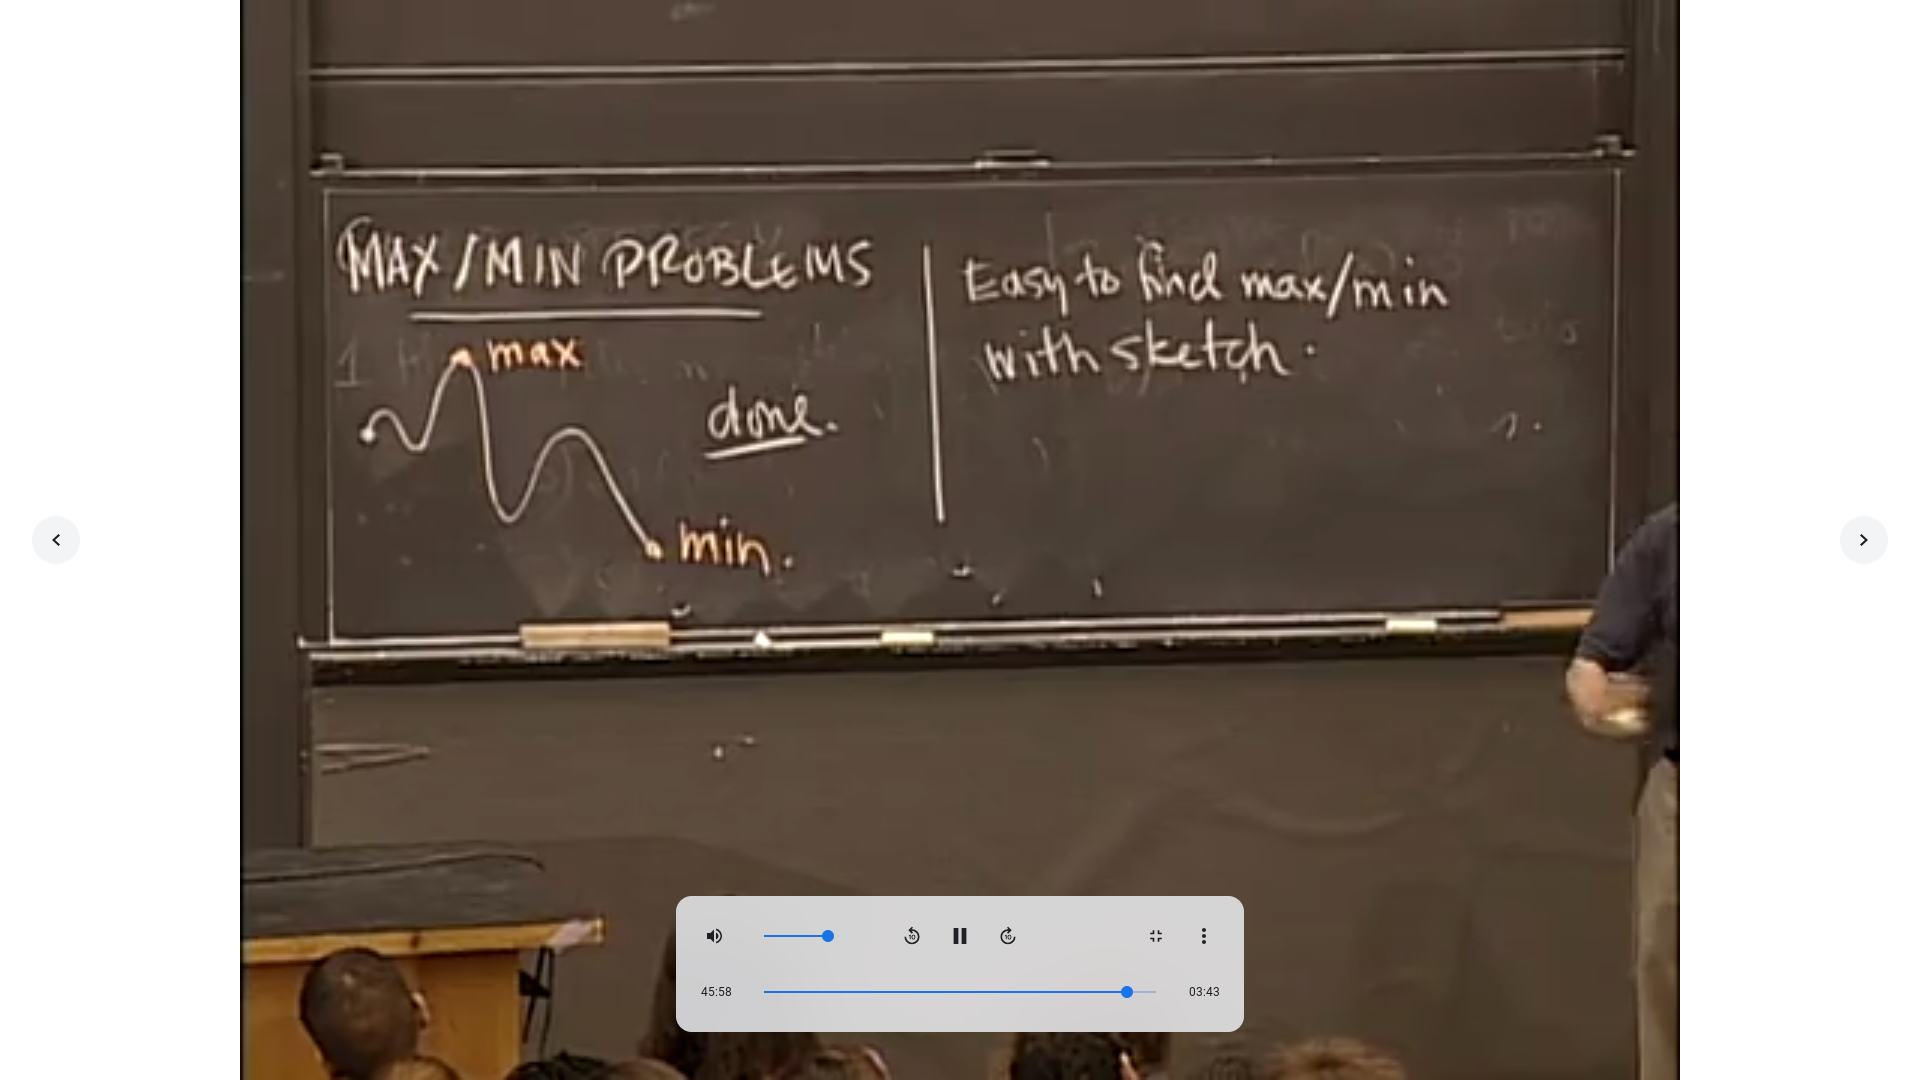 MAX/MIN PROBLEMS
max
done.
min.
Easy to find max/min
with sketch.
10
10
45:58
03:43